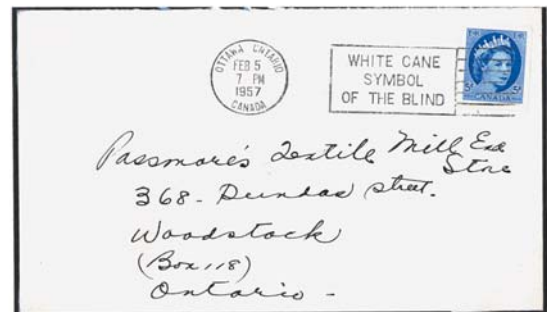 OTTAWA ONTARIO
FEB 5
7 PM
1957
CANADA
WHITE CANE
SYMBOL
OF THE BLIND
5¢ 5¢
CANADA
Passmore's Textile Mill End
Store
368 - Dundas Street.
Woodstock
(Box 118)
Ontario -